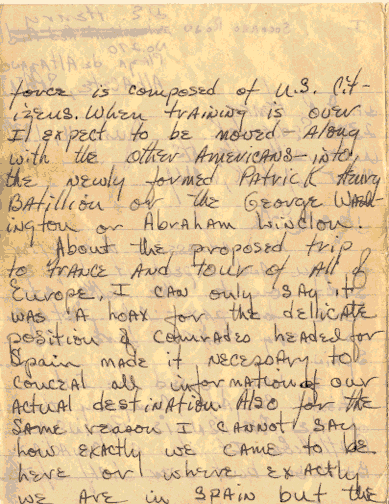 force is composed of U.S. Cit-
izens. When training is over
I expect to be moved - along
with the other Americans - into
the newly formed Patrick Henry
Batillion or the George Wash-
ington or Abraham Lincloln.
About the proposed trip
to France and tour of all of
Europe, I can only say it
was a hoax for the dellicate
position of comrades headed for
Spain made it necessary to
conceal all information of our
actual destination. Also for the
same reason I cannot say
how exactly we came to be
here or where exactly
we are in Spain but the